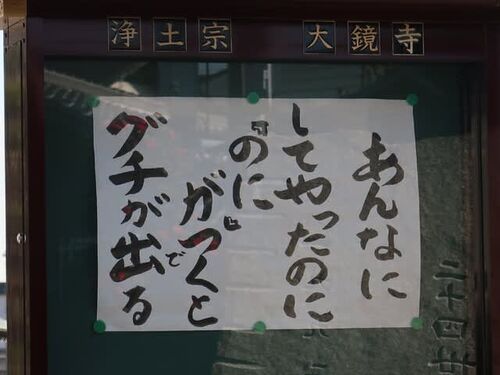 浄土宗 大鏡寺
あんなに
してやったのに
『のに』
がつくと
グチが出る
で
二十四